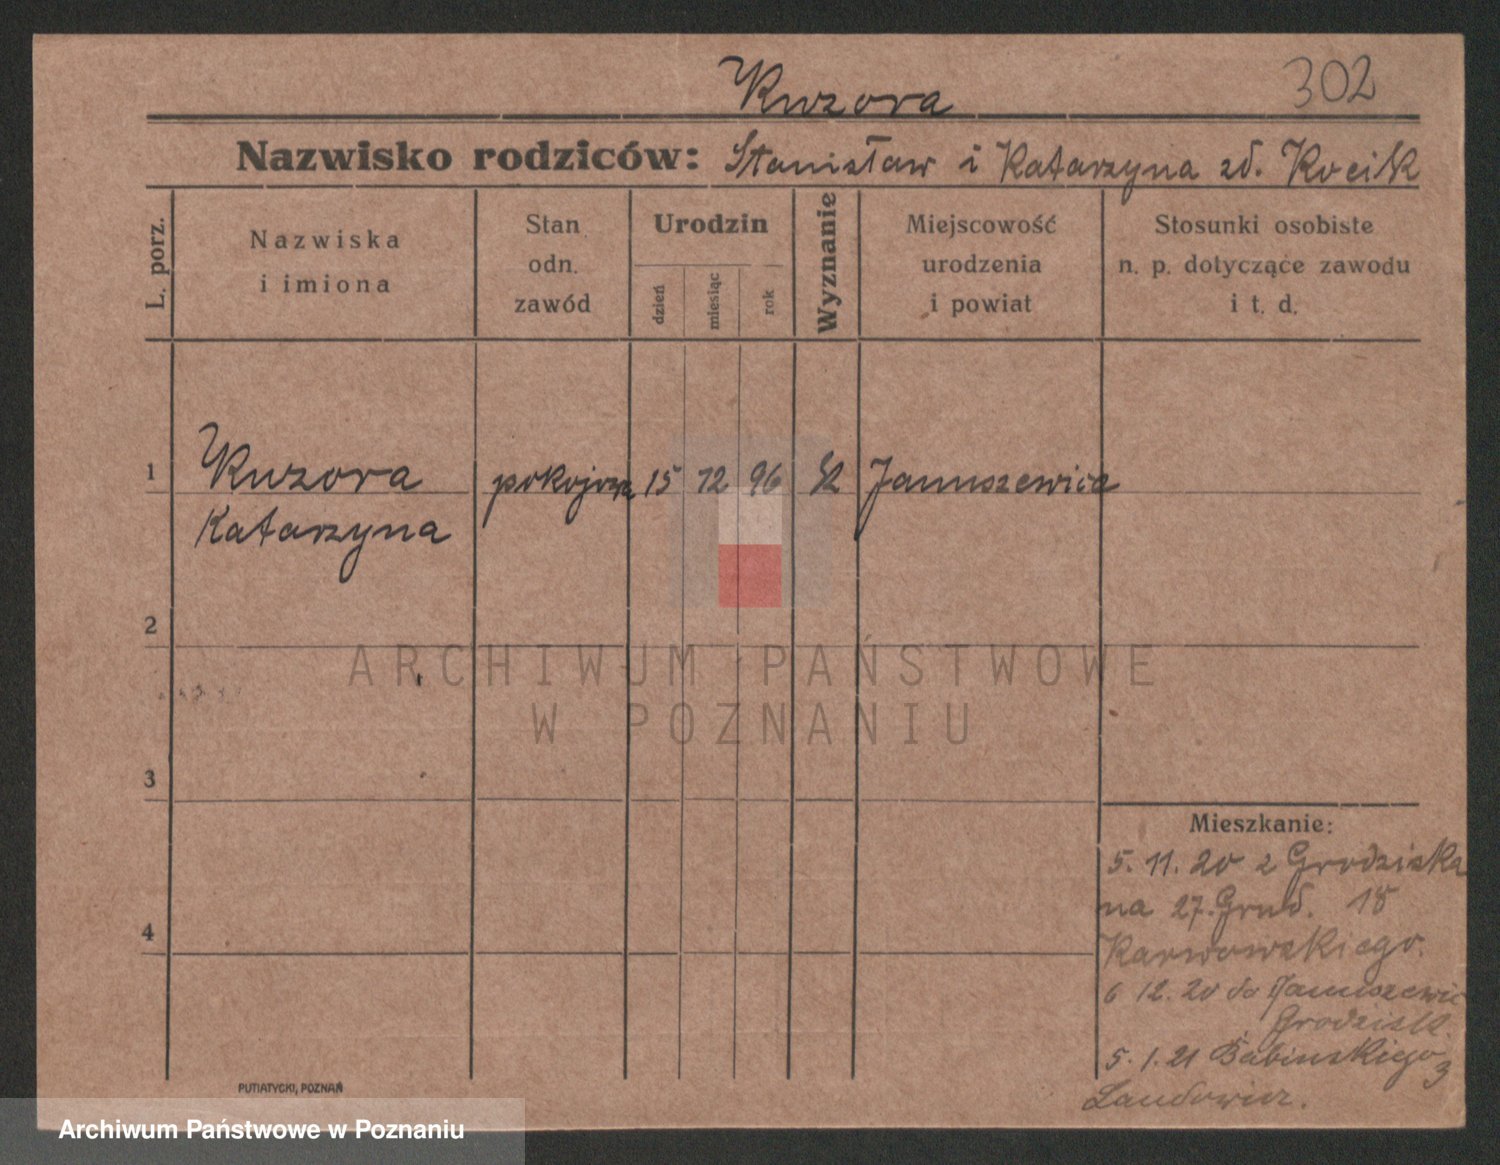 Kuzora
302
Nazwisko rodziców: Stanisław i Katarzyna zd. Kocik
L. porz.
Nazwiska
i imiona
Stan
odn.
zawód
Urodzin
dzień
miesiąc
rok
Wyznanie
Miejscowość
urodzenia
i powiat
Stosunki osobiste
n. p. dotyczące zawodu
i t. d.
1
Kuzora
Katarzyna
pokojowa
15
12
96
Januszewice
2
ARCHIWUM PAŃSTWOWE
W POZNANIU
3
4
Mieszkanie:
5. 11. 20 z Grodziska
na 27. Grud. 18
Karwowskiego.
6 12. 20 do Januszewic
Grodzisk
5. 1. 21 Babinskiego 3
PUTIATYCKI, POZNAŃ
Archiwum Państwowe w Poznaniu